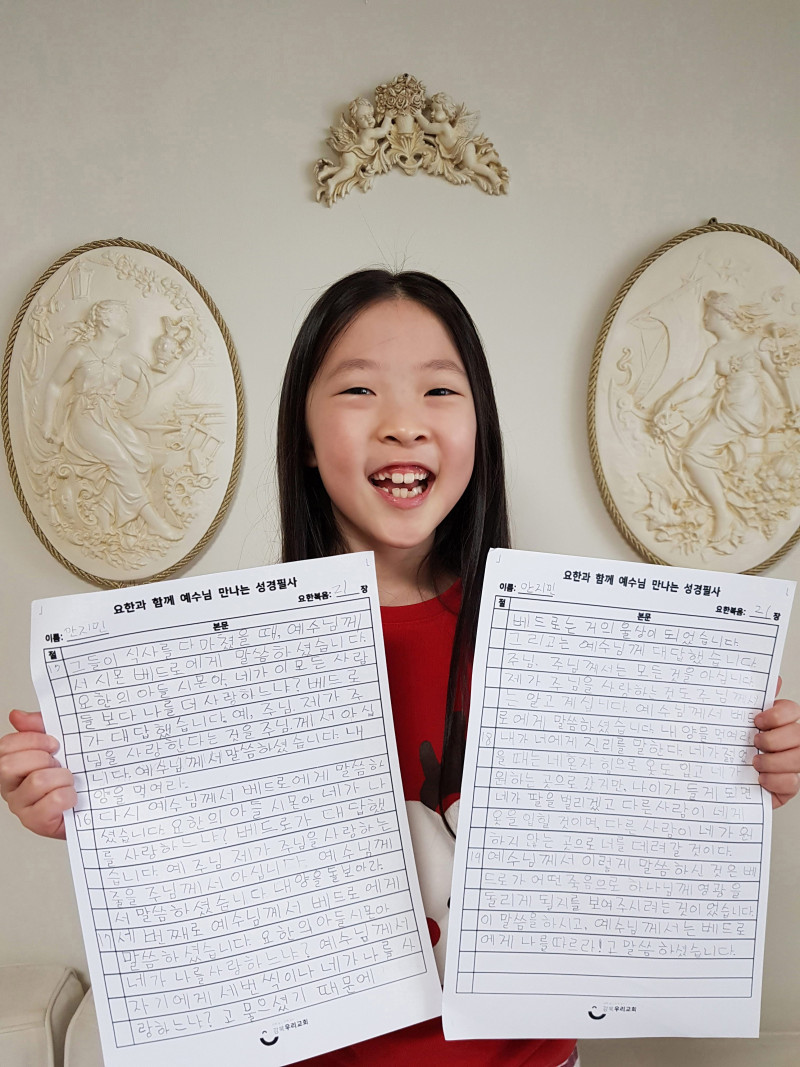 요한과 함께 예수님 만나는 성경필사
이름: 안지민
요한복음: 21 장
절
본문
그들이 식사를 다 마쳤을 때, 예수님께
서 시몬 베드로에게 말씀하셨습니다.
요한의 아들 시몬아, 네가 이 모든 사람
들보다 나를 더 사랑하느냐? 베드로
가 대답했습니다. 예, 주님, 제가 주
님을 사랑한다는 것을 주님께서 아십
니다. 예수님께서 말씀하셨습니다. 내
양을 먹여라.
16 다시 예수님께서 베드로에게 말씀하
셨습니다. 요한의 아들 시몬아 네가 나
를 사랑하느냐? 베드로가 대답했
습니다. 예 주님 제가 주님을 사랑하는
줄을 주님께서 아십니다. 예수님께
서 말씀하셨습니다 내 양을 돌보아라.
17 세 번째로 예수님께서 베드로에게
말씀하셨습니다. 요한의 아들 시몬아
네가 나를 사랑하느냐? 예수님께서
자기에게 세번씩이나 네가 나를 사
랑하느냐? 고 물으셨기 때문에
우리교회
요한과 함께 예수님 만나는 성경필사
이름: 안지민
요한복음: 21 장
절
본문
베드로는 거의 울상이 되었습니다
그리고는 예수님께 대답했습니다
주님. 주님께서는 모든 것을 아십니다
제가 주님을 사랑하는 것도 주님께서
는 알고 계십니다. 예수님께서 베드
로에게 말씀하셨습니다. 내 양을 먹여라
18 내가 너에게 진리를 말한다 네가 젊었
을 때는 네 혼자 힘으로 옷도 입고 네가
원하는 곳으로 갔지만, 나이가 들게 되면
네가 팔을 벌리겠고 다른 사람이 네게
옷을 입힐 것이며, 다른 사람이 네가 원
하지 않는 곳으로 너를 데려갈 것이다.
19 예수님께서 이렇게 말씀하신 것은 베
드로가 어떤 죽음으로 하나님께 영광을
돌리게 될지를 보여주시려는 것이었습니다.
이 말씀을 하시고, 예수님께서는 베드로
에게 나를 따르라! 고 말씀하셨습니다.
우리교회